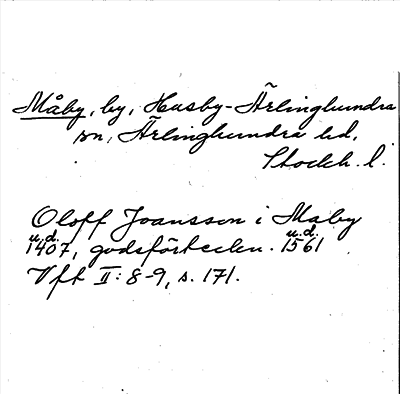 Måby, by, Husby-Ärlinghundra
sn, Ärlinghundra hd,
Stockh. l.
Oloff Joansson i Maby
u.d. u.d.
1407, godsförteckn. 1561
Vft II: 8-9, s. 171.